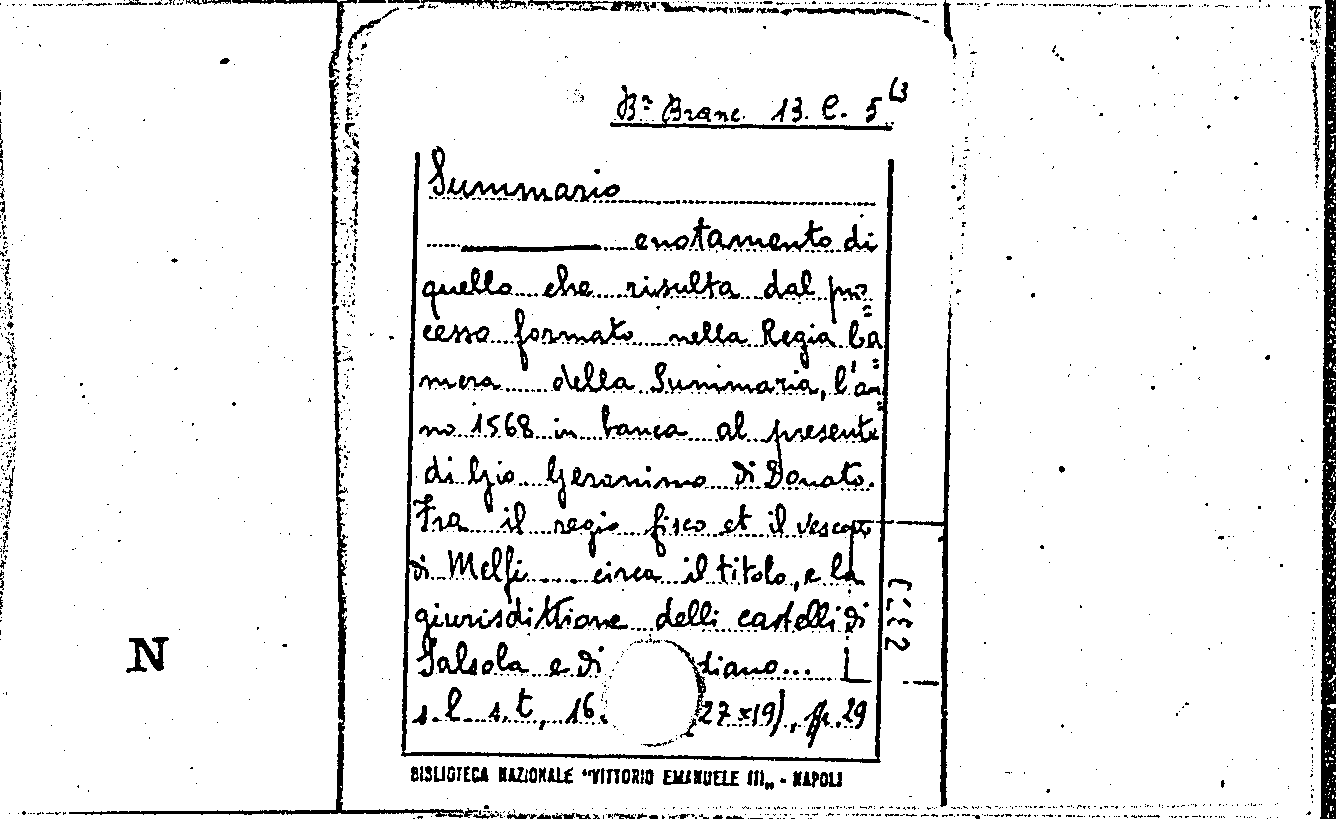 Bᵃ Branc. 13. C. 5 (3
Summario
enotamento di
quello che risulta dal pro=
cesso formato nella Regia Ca=
mera della Summaria, l'an=
no 1568 in banca al presente
di Gio Geronimo di Donato.
Fra il regio fisco et il vescovo
di Melfi ... circa il titolo, e la
giurisdittione delli castelli di
Salsola e di diano...
s. l. s. t., 16. (27×19), pp. 29
N
BIBLIOTECA NAZIONALE "VITTORIO EMANUELE III„ - NAPOLI